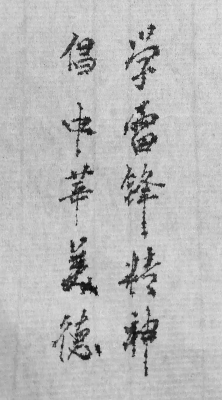 学雷锋精神
倡中华美德